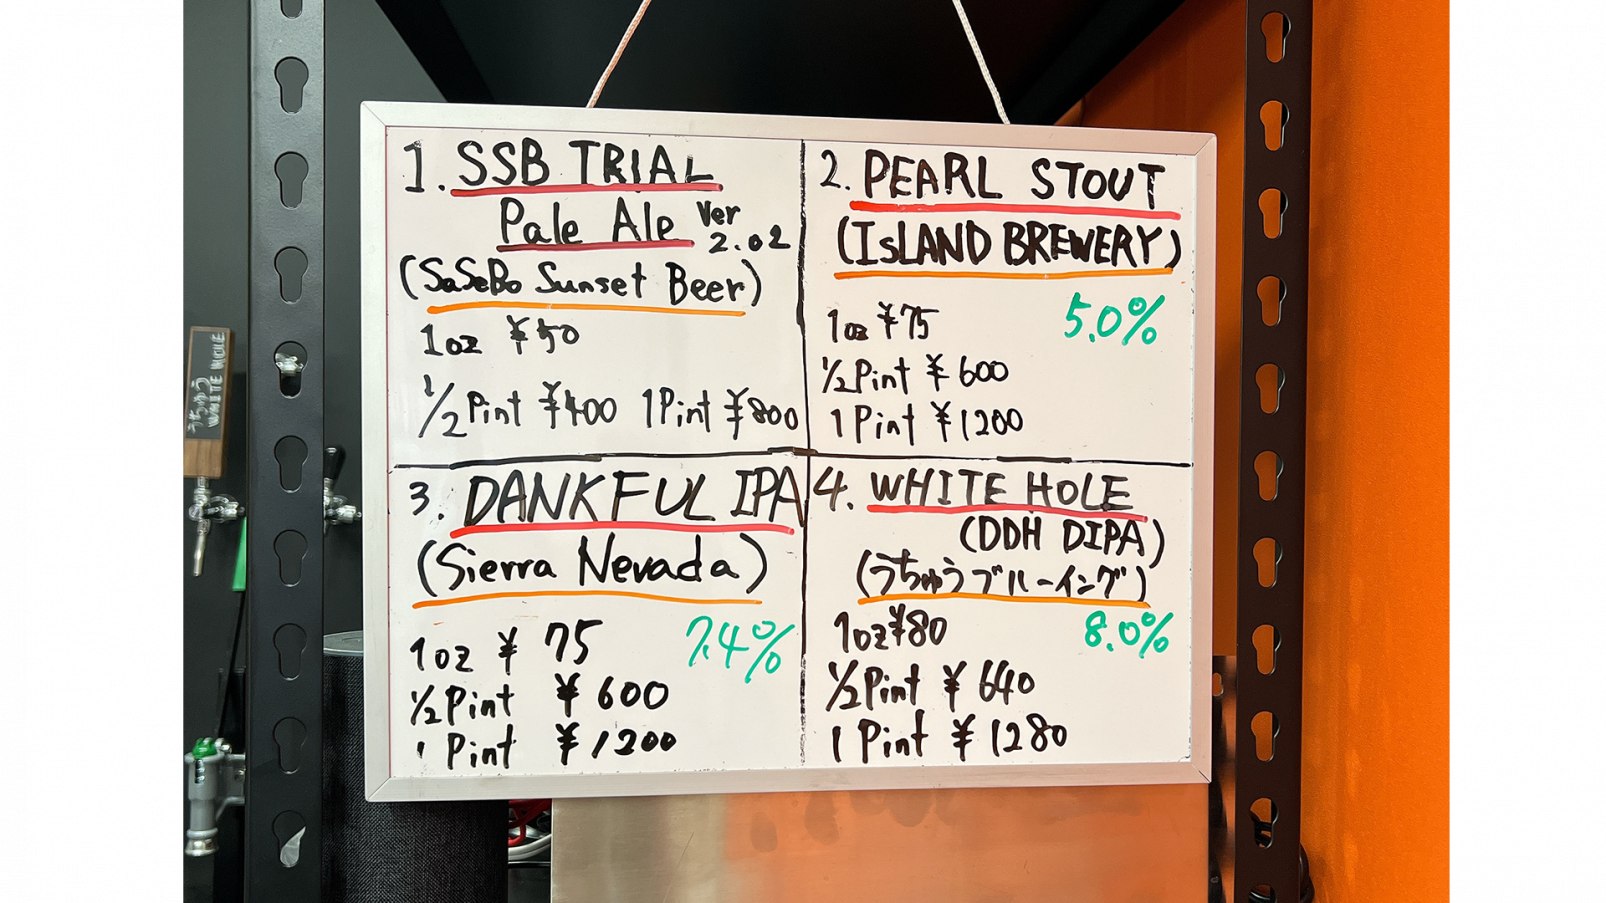 1. SSB TRIAL
Pale Ale Ver 2.02
(SaSeBo Sunset Beer)
1oz ¥50
1/2 Pint ¥400 1Pint ¥800
2. PEARL STOUT
(ISLAND BREWERY)
1oz ¥75 5.0%
1/2Pint ¥600
1Pint ¥1200
3. DANKFUL IPA
(Sierra Nevada)
1oz ¥75 7.4%
1/2Pint ¥600
1 Pint ¥1200
4. WHITE HOLE
(DDH DIPA)
(うちゅうブルーイング)
1oz¥80 8.0%
1/2Pint ¥640
1 Pint ¥1280
うちゅう
WHITE HOLE